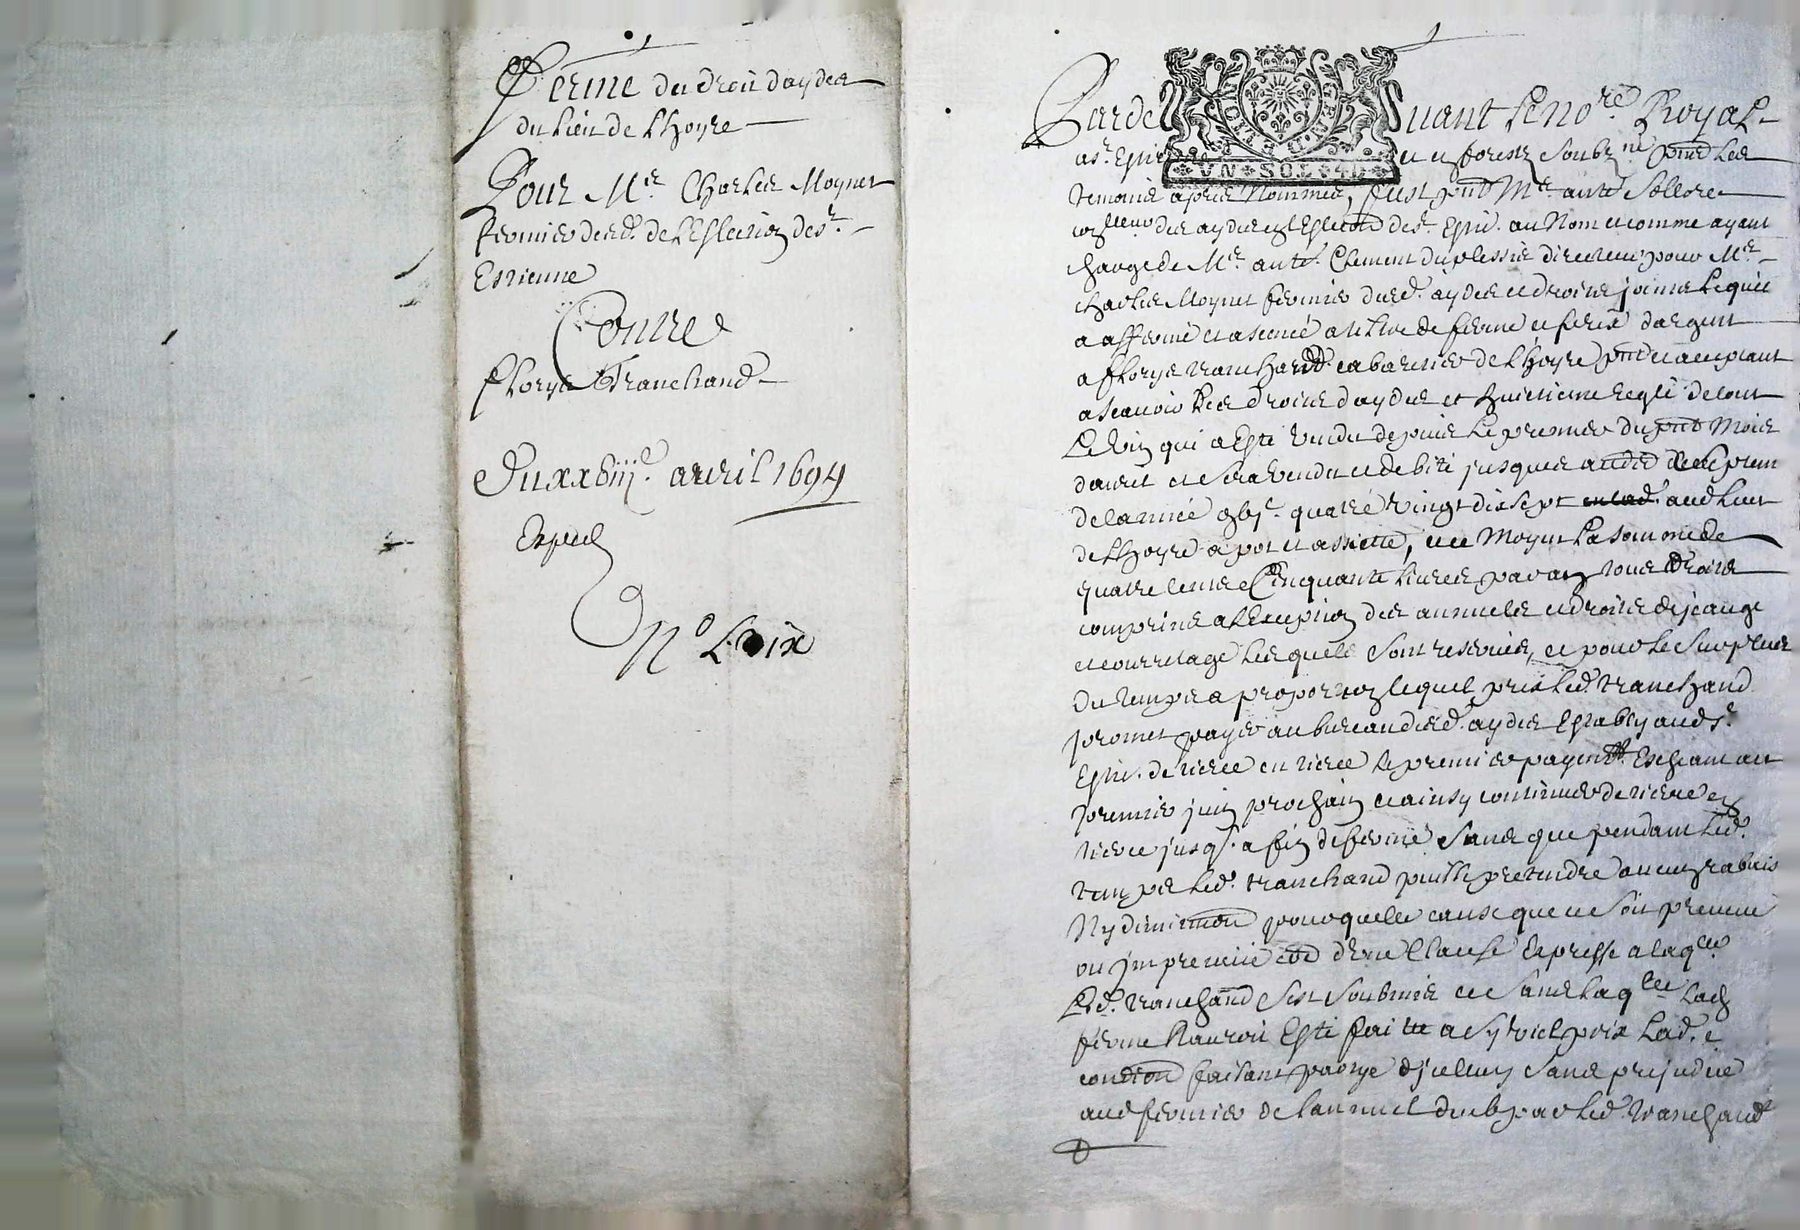 Ferme du droit daydes
du Lieu de Lhoyre
Pour Me. Charles Moynet
fermier desd. de Leslection de St.
Estienne
Contre
florys Tranchand
Du xxviije. avril 1694
Exped
No Lvix
Pardevant le nore. Royal
a St. Estienne en forestz soubzne. pnt les
temoins apres Nommes, fust pnt Me. ante Sollore
des aydes en Leslection de St. Estie. au Nom et comme ayant
charge de Mr. ante. Clement duplessis directeur pour Me.
charles Moynet fermier desd. aydes et droits joints Lequel
a affermé et a titre de ferme et prix dargent
a florys tranchand cabaretier de Lhoyre pnt et acceptant
a scavoir Les droits daydes et huictieme reglé de tout
Le vin qui a esté vendu depuis Le premier du pnt Mois
davril et sera vendu et debité jusques au premier
de lannée quatre vingt dix sept aud Lieu
de Lhoyre a pot et assiette, et ce Moyent La somme de
quatre cents Cinquante Livres par an tous droits
comprins a Lexception des annuels et droits de jauge
et courretage Lesquels sont reservés, et pour Le surplus
du temps a proportion Lequel prix Led. tranchand
promet payer au bureau desd. aydes establi aud St.
Estie. de tierce en tierce Le premier payemt. Escheant au
premier juin prochain et ainsy continuer de tierce en
tierce jusq. a fin de ferme sans que pendant Led.
temps Led. tranchand puisse pretendre aucun rabais
Ny diminuon pour quelle cause que ce soit preveue
ou jmpreveue Clause Expresse a laqle.
Led. tranchand sest soubmis et sans laqlle Lad
ferme Nauroit Esté faitte a sy vil prix Lad. e
condion faisant partye djcelluy sans prejudice
aud fermier de Lannuel deub par Led. tranchand